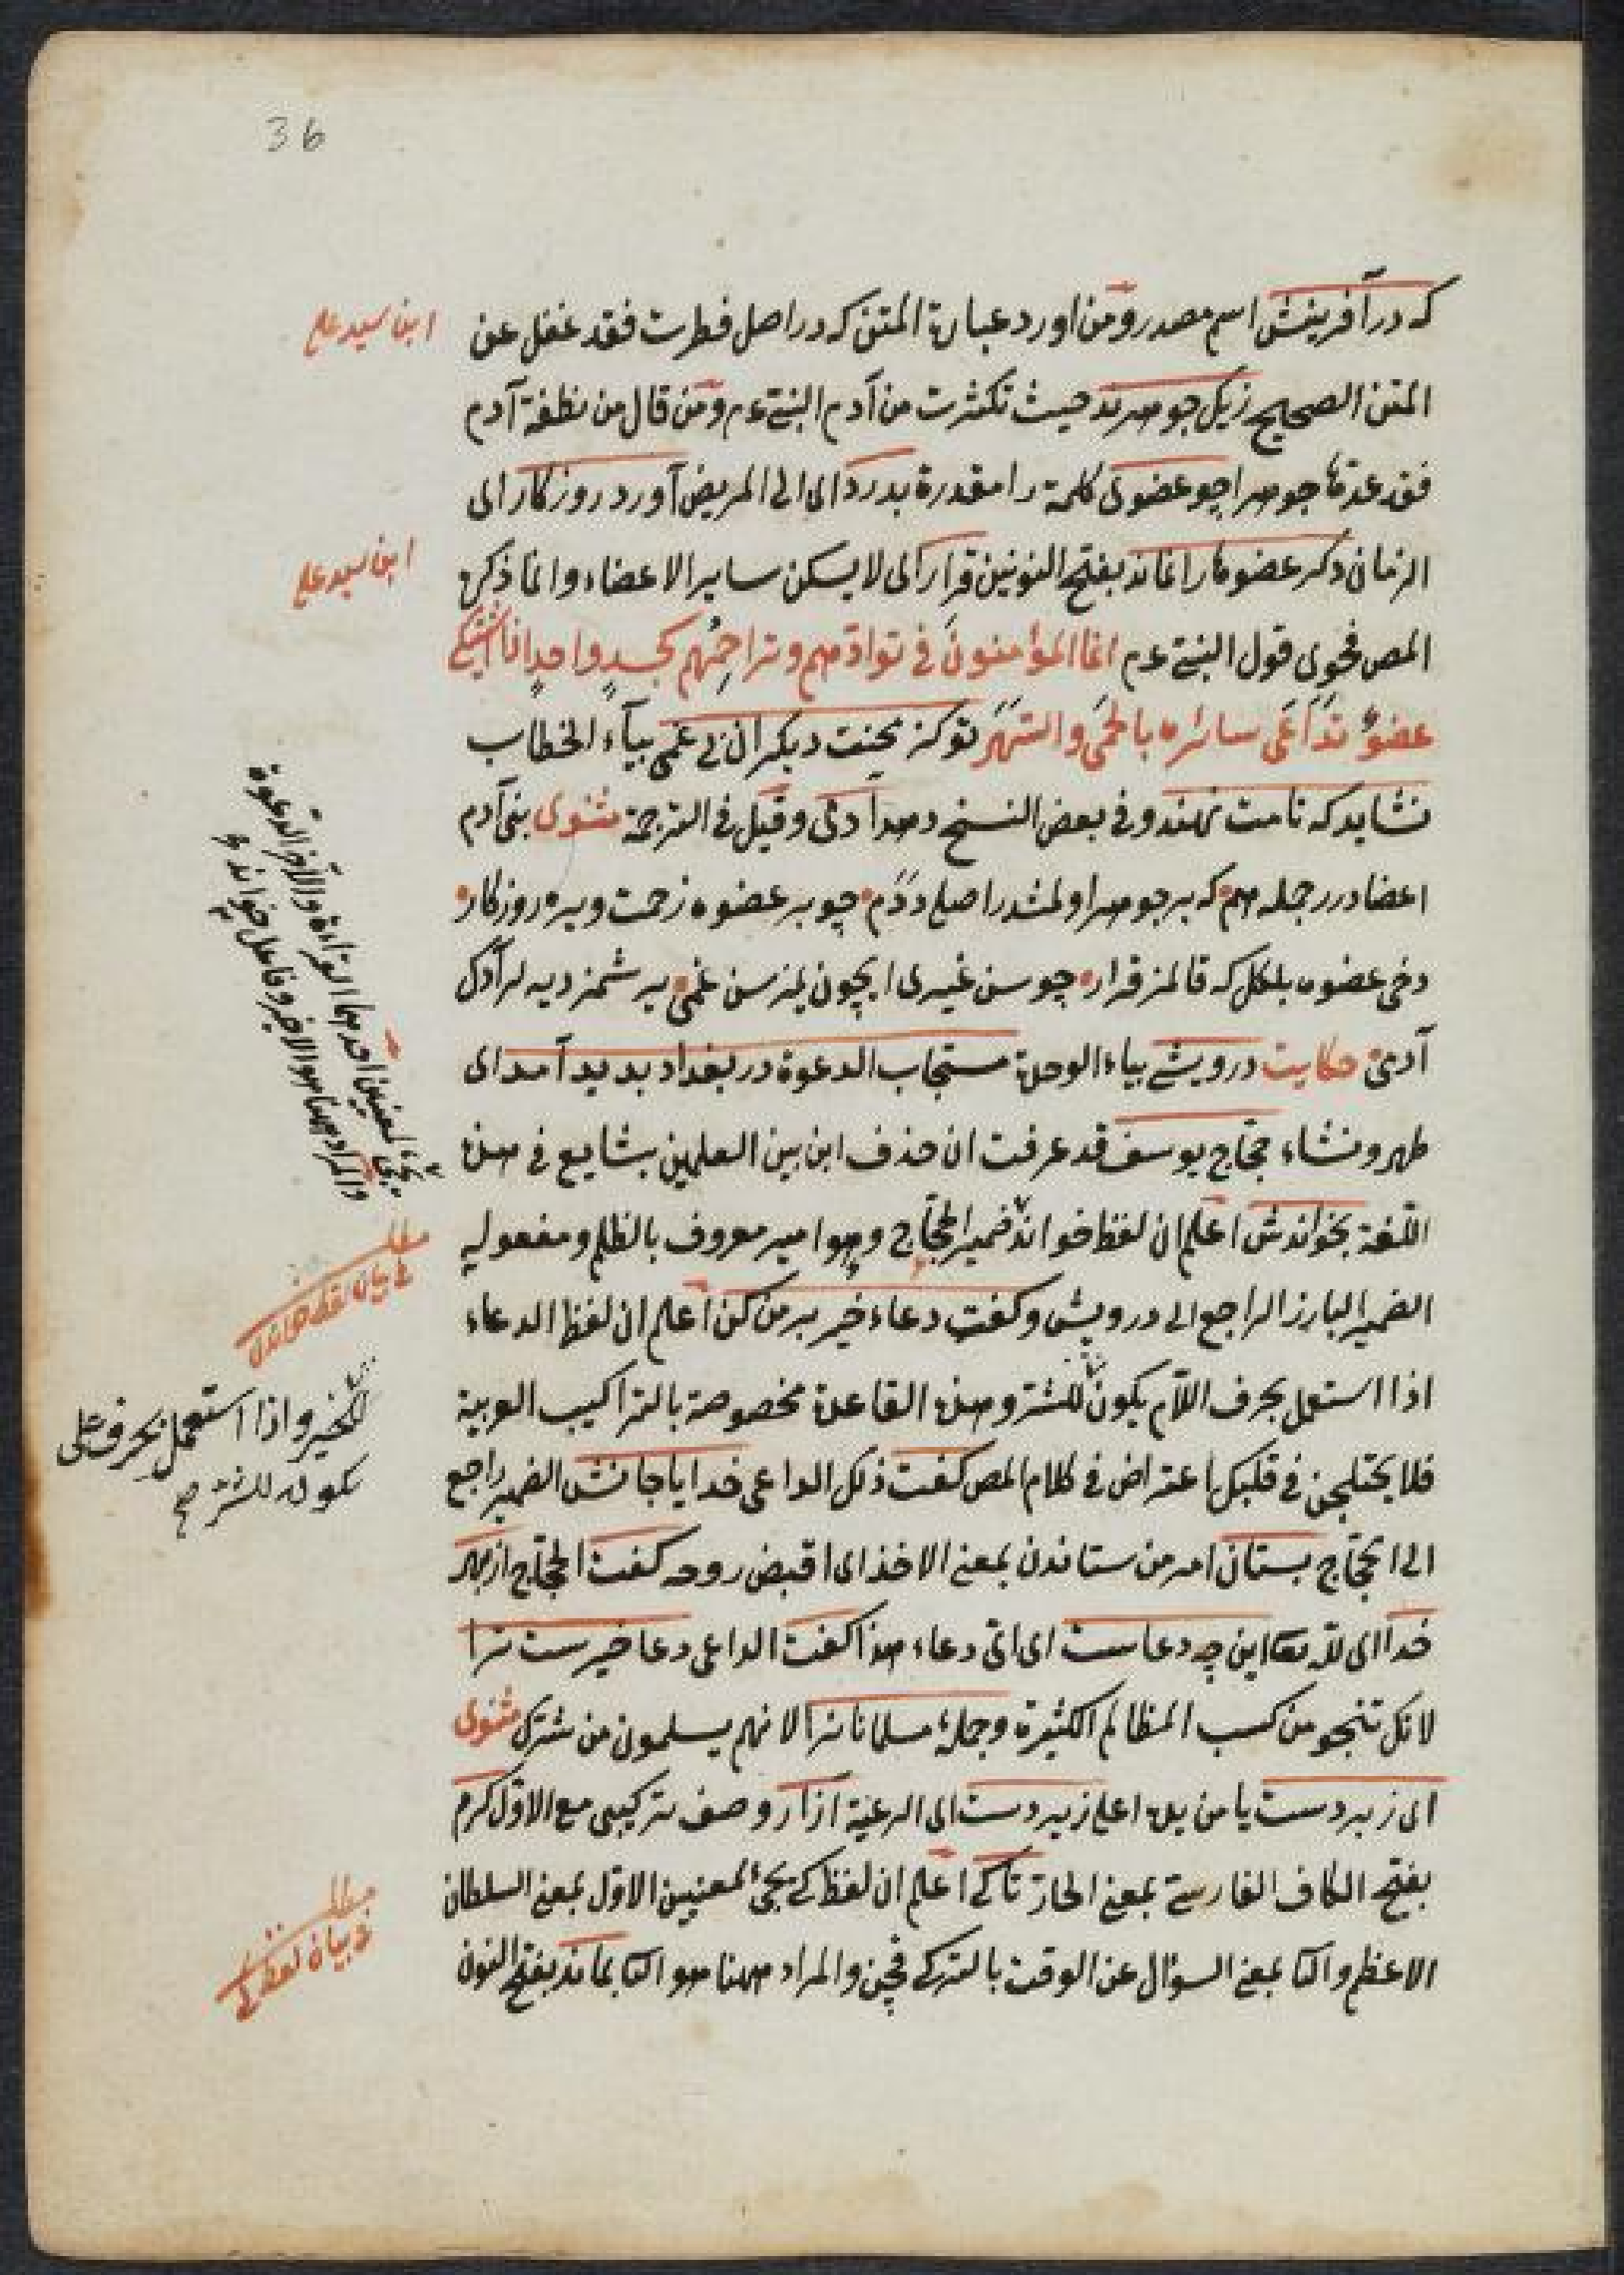 36
که در آفرینش اسم مصدر ومن اورد عبارة المتن که در اصل فطرت فقد غفل عن
ابن سید علی
المتن الصحیح زیک جوهرند حیث تکثرت من آدم النبی عم ومن قال من نطفة آدم
فقد عدها جوهرا چو عضوی کلمة را مقدرة بدرد ای الی المریض آورد روزکار ای
الزمان دکر عضوها را نماند بفتح النونین قرار ای لا یسکن سایر الاعضاء وانما ذکره
ابن سید علی
المص فحوی قول النبی عم انما المؤمنون فی توادهم وتراحمهم کجسد واحد اذا اشتکی
عضو تداعی سائره بالحمی والسهر توکز محنت دیکران بی غمی بیاء الخطاب
نشاید که نامت نهند وفی بعض النسخ دهد آدمی وقیل فی الترجمة مثنوی بنی آدم
اعضادر رجمله هم که بر جوهر اولمشدر اصل ددم چو بر عضوه زحمت ویره روزکار
دخی عضوه بلکل که قالمز قرار چو سن غیری ایچون یمزسن غمی یرشمز دیه لر آدک
آدمی حکایت درویشی بیاء الوحدة مستجاب الدعوة در بغداد بدید آمد ای
ظهر ونشاء حجاج یوسف قد عرفت ان حذف ابن بین العلمین شایع فی هذه
اللغة بخواندش اعلم ان لفظ خواند ضمیر الحجاج وهو امیر معروف بالظلم ومفعولیه
یجئ لمعنیین احدهما القراءة والآخر الدعوة
والمراد ههنا هو الاخیر وفاعل خواند
مطلب
فی بیان لفظ خواندن
الضمیر البارز الراجع الی درویش وکفت دعاء خیر بر من کن اعلم ان لفظ الدعاء
اذا استعمل بحرف اللام یکون للشر وهذه القاعدة مخصوصة بالتراکیب العربیة
للخیر واذا استعمل بحرف علی
یکون للشر صح
فلا یختلجن فی قلبک اعتراض فی کلام المص کفت ذلک الداعی خدایا جانش الضمیر راجع
الی الحجاج بستان امر من ستاندن بمعنی الاخذ ای اقبض روحه کفت الحجاج از بهر
خدا ای لله تعا این چه دعاست ای ای دعاء هذا کفت الداعی دعا خیرست ترا
لانک تنجو من کسب المظالم الکثیرة وجملهٔ مسلمانانرا لانهم یسلمون من شرک مثنوی
ای زبردست یا من یده اعلی زیردست ای الرعیة آزار وصف ترکیبی مع الاول کرم
بفتح الکاف الفارسیة بمعنی الحار تا کی اعلم ان لفظ کی یجئ لمعنیین الاول بمعنی السلطان
مطلب
فی بیان لفظ کی
الاعظم والثا بمعنی السؤال عن الوقت بالترکی قچن والمراد ههنا هو الثا بماند بفتح النون